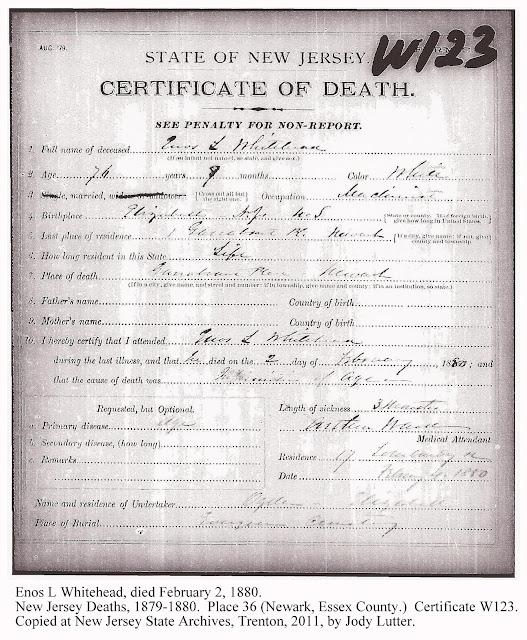 AUG. '79.
W123
STATE OF NEW JERSEY.
CERTIFICATE OF DEATH.
SEE PENALTY FOR NON-REPORT.
1. Full name of deceased Enos L Whitehead
(If an infant not named, so state, and give sex.)
2. Age, 76 years 9 months. Color White
3. Single, married, widow or widower. {Cross out all but the right one.} Occupation Machinist
4. Birthplace Elizabeth N.J. U.S {State or county. If of foreign birth, give how long in United States.}
5. Last place of residence 1 R. Newark {If in city, give name; if not, give county and township.}
6. How long resident in this State Life
7. Place of death Newark
(If in a city, give name, and street and number; if in township, give name and county; if in an institution, so state.)
8. Father's name Country of birth
9. Mother's name Country of birth
10. I hereby certify that I attended Enos L Whitehead
during the last illness, and that he died on the 2 day of February, 1880; and
that the cause of death was of Age
Requested, but Optional.
Length of sickness 3 Months
a. Primary disease, Age
Medical Attendant
b. Secondary disease, (how long)
Residence 17
c. Remarks
Date February 1880
Name and residence of Undertaker Ogden Elizabeth
Place of Burial, Evergreen Cemetery
Enos L Whitehead, died February 2, 1880.
New Jersey Deaths, 1879-1880. Place 36 (Newark, Essex County.) Certificate W123.
Copied at New Jersey State Archives, Trenton, 2011, by Jody Lutter.